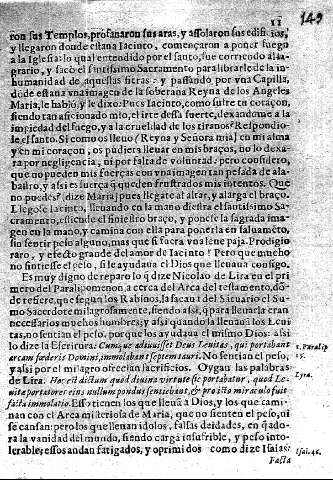 11
149
ron sus Templos, profanaron sus aras, y assolaron sus edificios,
y llegaron donde estaua Iacinto, començaron a poner fuego
a la Iglesia: lo qual entendido por el santo, fue corriendo al sa-
grario, y sacò el santissimo Sacramento para librarle de la in-
humanidad de aquellas fieras: y passando por vna Capilla,
donde estaua vna imagen de la soberana Reyna de los Angeles
Maria, le hablò, y le dixo: Pues Iacinto, como sufre tu coraçon,
siendo tan aficionado mio, el irte dessa suerte, dexandome a la
impiedad del fuego, y a la crueldad de los tiranos? Respondio-
le el santo. Si como os lleuo (Reyna y Señora mia) en mi alma
y en mi coraçon, os pudiera lleuar en mis braços, no lo dexa-
ra por negligencia, ni por falta de voluntad: pero considero,
que no pueden mis fuerças con vna imagen tan pesada de ala-
bastro, y assi es fuerça queden frustrados mis intentos. Que
no puedes? (dize Maria) pues llegate al altar, y alarga el braço.
Llegose Iacinto, lleuando en la mano diestra el santissimo Sa-
cramento, estiende el siniestro braço, y ponese la sagrada ima-
gen en la mano, y camina con ella para ponerla en saluamẽto,
sin sentir peso alguno, mas que si fuera vna leue paja. Prodigio
raro, y efecto grande del amor de Iacinto! Pero que mucho
no sintiesse el peso, si le ayudaua el Dios que lleuaua consigo.
Es muy digno de reparo lo q̃ dize Nicolao de Lira en el pri-
mero del Paralipomenon, a cerca del Arca del testamento, dõ-
de refiere, que segun los Rabinos, la sacaua del Sicuario el Su-
mo Sacerdote milagrosamente, siendo assi, q̃ para lleuarla eran
necessarios muchos hombres; y assi quando la lleuauan los Leui
tas, no sentian el peso, porque los ayudaua el mismo Dios: assi
lo dize la Escritura: Cumque adiuuisset Deus Leuitas, qui portabant
arcam fœderis Domini, immolabant septem tauri. No sentian el peso,
y assi por el milagro ofrecian sacrificios. Oygan las palabras
de Lira. Hoc est dictum quod diuina virtute sic portabatur, quod Le-
uitæ portatores eius nullum pondus sentiebant, & pro isto miraculo fuit
facta immolatio. Esso tienen los que lleuã a Dios, y los que cami-
nan con el Arca misteriosa de Maria, que no sienten el peso, ni
se cansan: pero los que lleuan idolos, falsas deidades, en q̃ ado-
ra la vanidad del mundo, siendo carga insufrible, y peso into-
lerable; essos andan fatigados, y oprimidos como dize Isaias:
Facta
1. Paralip
15.
Lyra.
Isai. 46.